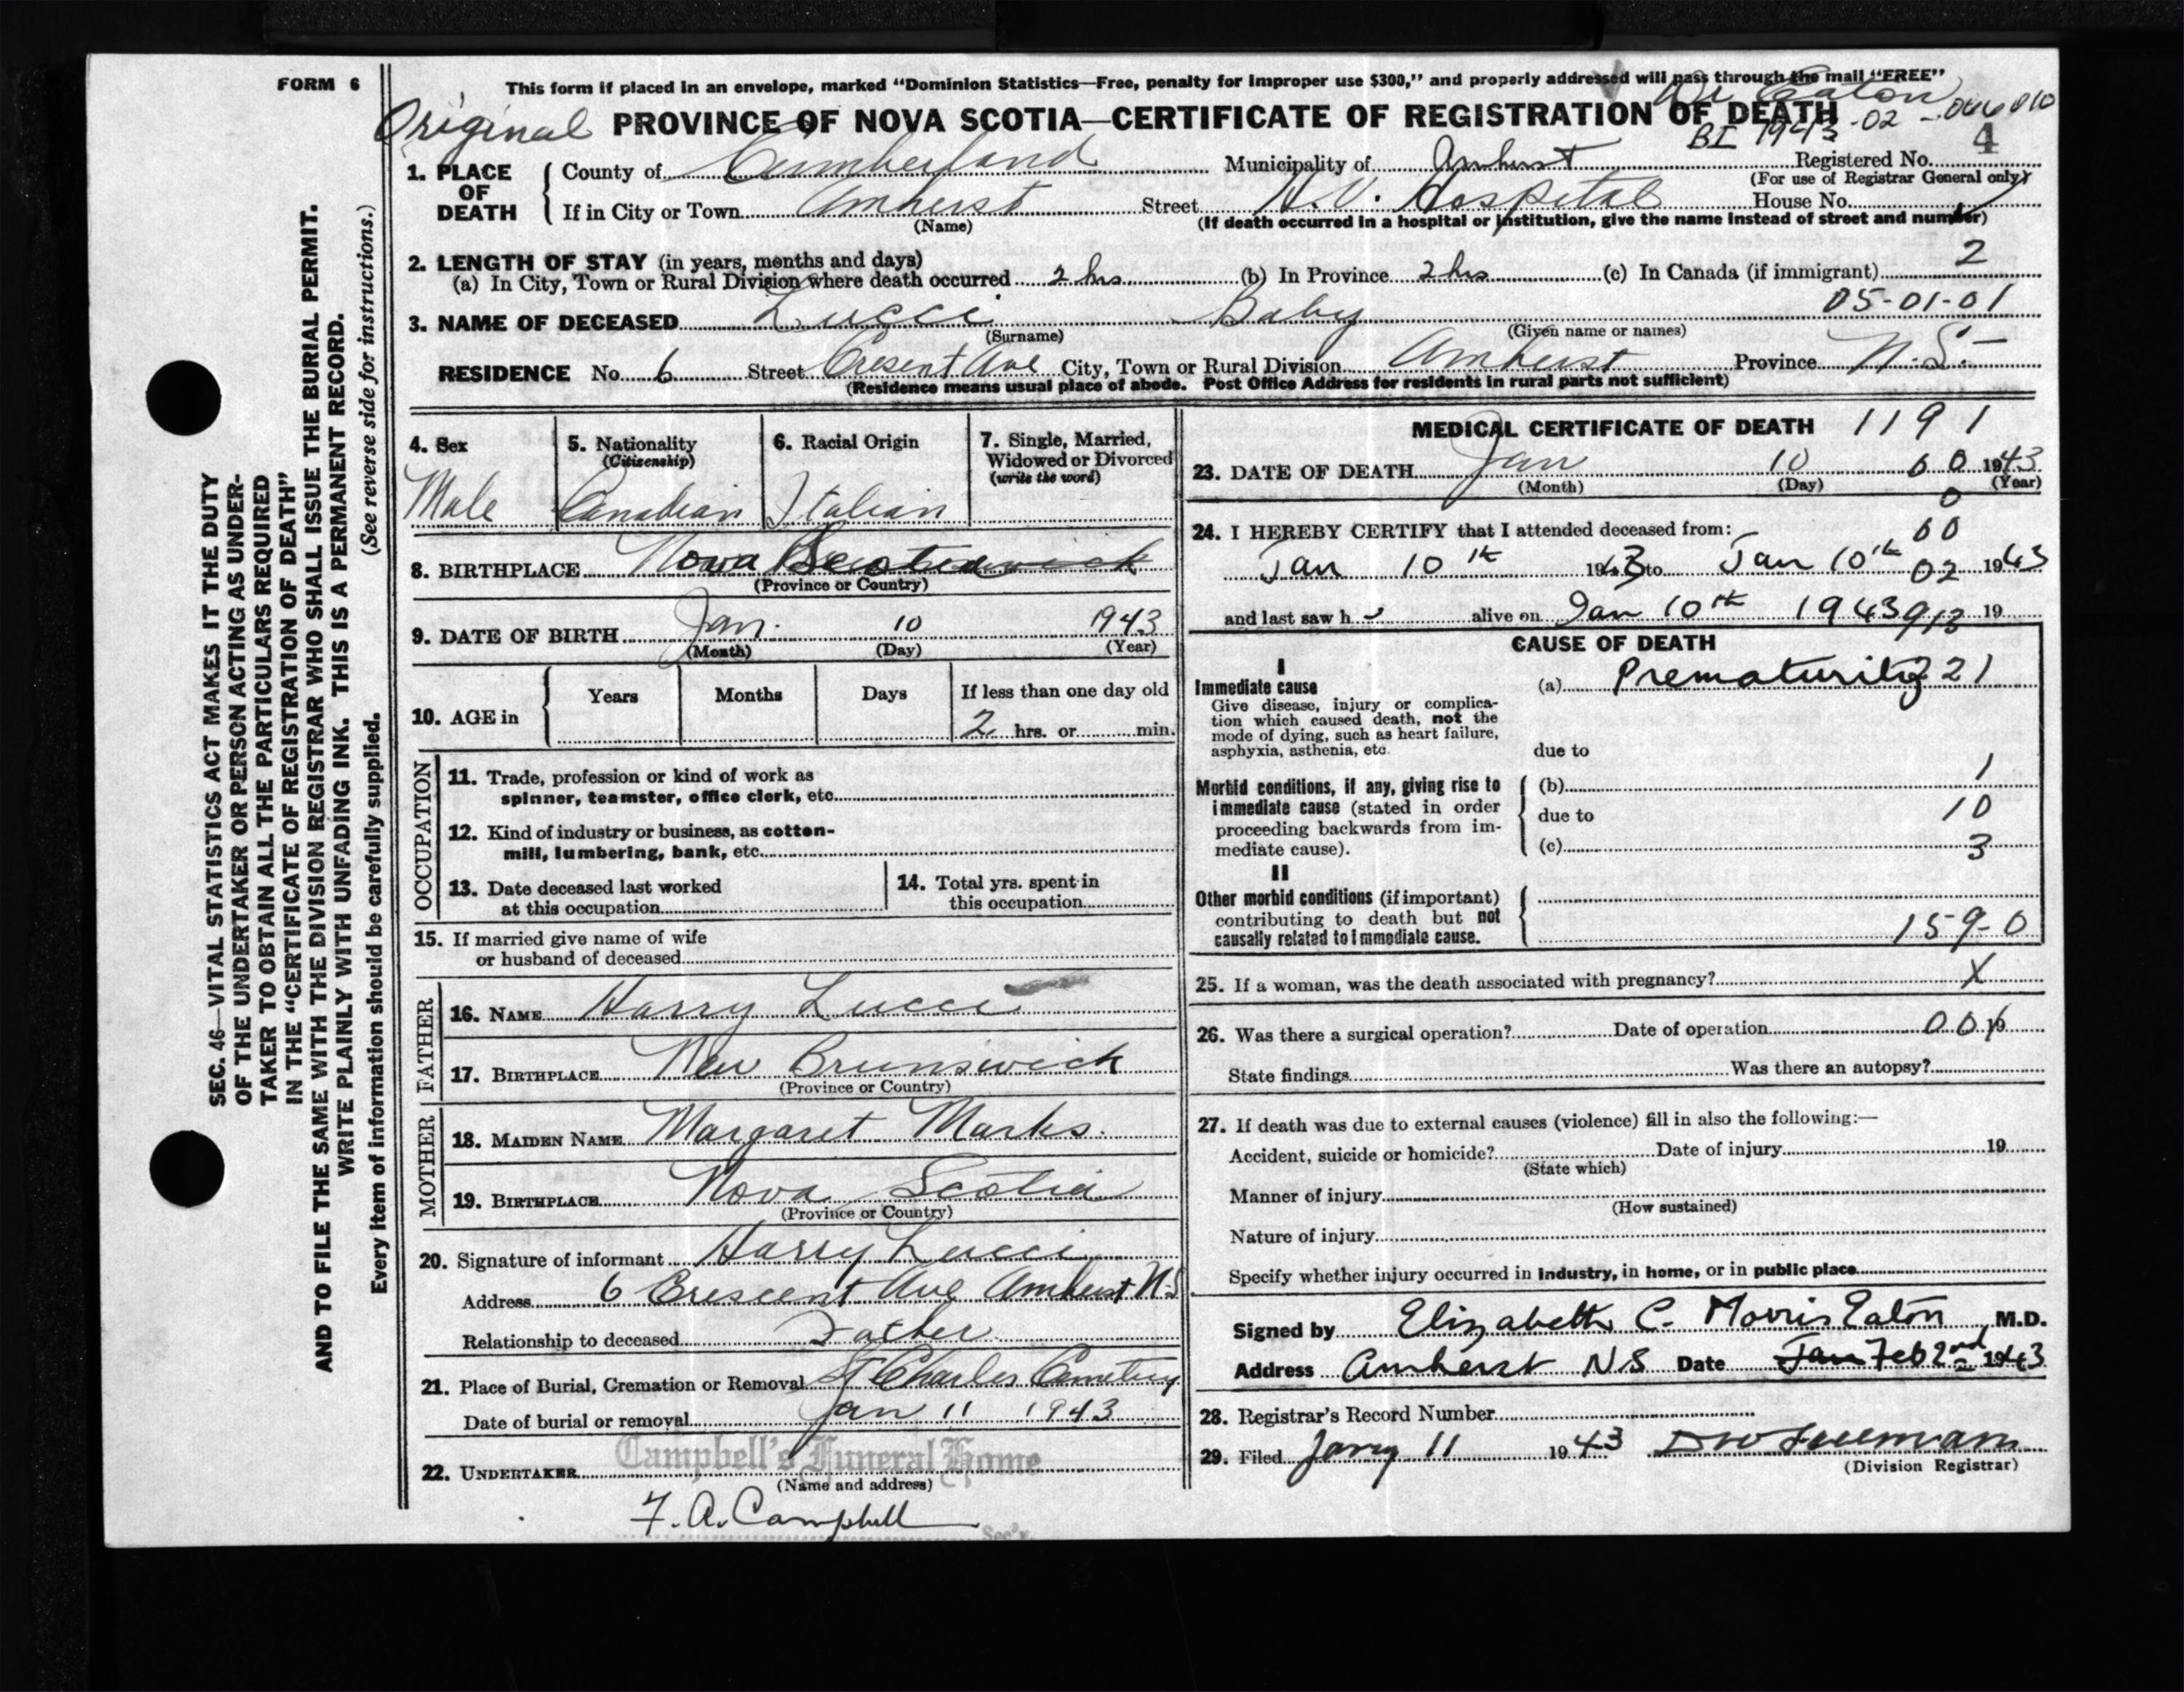 FORM 6
This form if placed in an envelope, marked “Dominion Statistics—Free, penalty for improper use $300,” and properly addressed will pass through the mail “FREE”
Dr Eaton
Original PROVINCE OF NOVA SCOTIA—CERTIFICATE OF REGISTRATION OF DEATH
BI 1943-02-006010
4
1. PLACE OF DEATH { County of Cumberland Municipality of Amherst Registered No.
(For use of Registrar General only)
If in City or Town Amherst Street H.V. Hospital House No.
(Name) (If death occurred in a hospital or institution, give the name instead of street and number)
2. LENGTH OF STAY (in years, months and days)
(a) In City, Town or Rural Division where death occurred 2 hrs (b) In Province 2 hrs (c) In Canada (if immigrant) 2
05-01-01
3. NAME OF DECEASED Lucci Baby
(Surname) (Given name or names)
RESIDENCE No. 6 Street Cresent Ave City, Town or Rural Division Amherst Province N.S.
(Residence means usual place of abode. Post Office Address for residents in rural parts not sufficient)
4. Sex 5. Nationality (Citizenship) 6. Racial Origin 7. Single, Married, Widowed or Divorced (write the word)
Male Canadian Italian
8. BIRTHPLACE Nova Scotia
(Province or Country)
9. DATE OF BIRTH Jan. 10 1943
(Month) (Day) (Year)
10. AGE in { Years Months Days If less than one day old
2 hrs. or min.
OCCUPATION
11. Trade, profession or kind of work as
spinner, teamster, office clerk, etc.
12. Kind of industry or business, as cotton-
mill, lumbering, bank, etc.
13. Date deceased last worked
at this occupation
14. Total yrs. spent in
this occupation
15. If married give name of wife
or husband of deceased
FATHER
16. NAME Harry Lucci
17. BIRTHPLACE New Brunswick
(Province or Country)
MOTHER
18. MAIDEN NAME Margaret Marks.
19. BIRTHPLACE Nova Scotia
(Province or Country)
20. Signature of informant Harry Lucci
Address 6 Crescent Ave Amherst N.S
Relationship to deceased Father
21. Place of Burial, Cremation or Removal St Charles Cemetery
Date of burial or removal Jan 11 1943
Campbell's Funeral Home
22. UNDERTAKER
(Name and address)
F. A. Campbell
Sec'y.
MEDICAL CERTIFICATE OF DEATH 1191
23. DATE OF DEATH Jan 10 60 1943
(Month) (Day) (Year)
0
24. I HEREBY CERTIFY that I attended deceased from:
60
Jan 10th 1943 to Jan 10th 02 1943
and last saw h alive on Jan 10th 1943 913 19
CAUSE OF DEATH
I
Immediate cause (a) Prematurity 21
Give disease, injury or complica-
tion which caused death, not the
mode of dying, such as heart failure,
asphyxia, asthenia, etc.
due to
Morbid conditions, if any, giving rise to
immediate cause (stated in order
proceeding backwards from im-
mediate cause).
(b) 1
due to 10
(c) 3
II
Other morbid conditions (if important)
contributing to death but not
causally related to immediate cause.
159-0
25. If a woman, was the death associated with pregnancy? X
26. Was there a surgical operation? Date of operation 00 19
State findings Was there an autopsy?
27. If death was due to external causes (violence) fill in also the following:—
Accident, suicide or homicide? Date of injury 19
(State which)
Manner of injury
(How sustained)
Nature of injury
Specify whether injury occurred in industry, in home, or in public place
Signed by Elizabeth C. Morris Eaton M.D.
Address Amherst NS Date Jan Feb 2nd 1943
28. Registrar's Record Number
29. Filed Jany 11 1943
(Division Registrar)
SEC. 46—VITAL STATISTICS ACT MAKES IT THE DUTY
OF THE UNDERTAKER OR PERSON ACTING AS UNDER-
TAKER TO OBTAIN ALL THE PARTICULARS REQUIRED
IN THE “CERTIFICATE OF REGISTRATION OF DEATH”
AND TO FILE THE SAME WITH THE DIVISION REGISTRAR WHO SHALL ISSUE THE BURIAL PERMIT.
WRITE PLAINLY WITH UNFADING INK. THIS IS A PERMANENT RECORD.
(See reverse side for instructions.)
Every item of information should be carefully supplied.